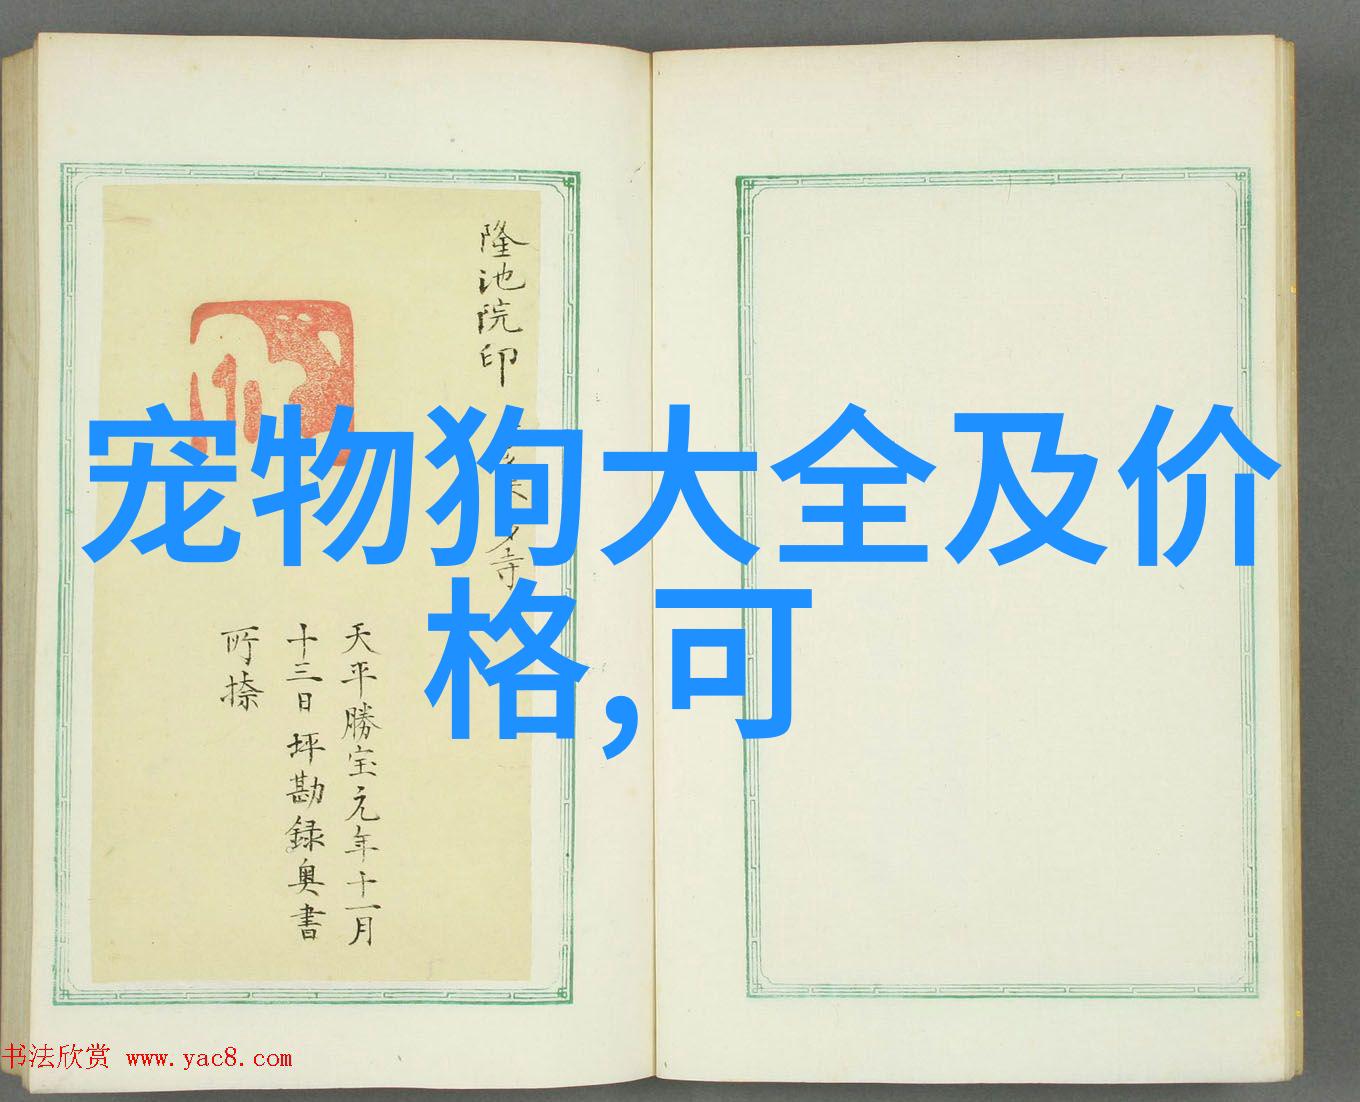 隆池院印
寺
天平勝宝元年十一月
十三日坪勘録奥書
所捺
宠物狗大全及价
格,可
书法欣赏 www.yac8.com